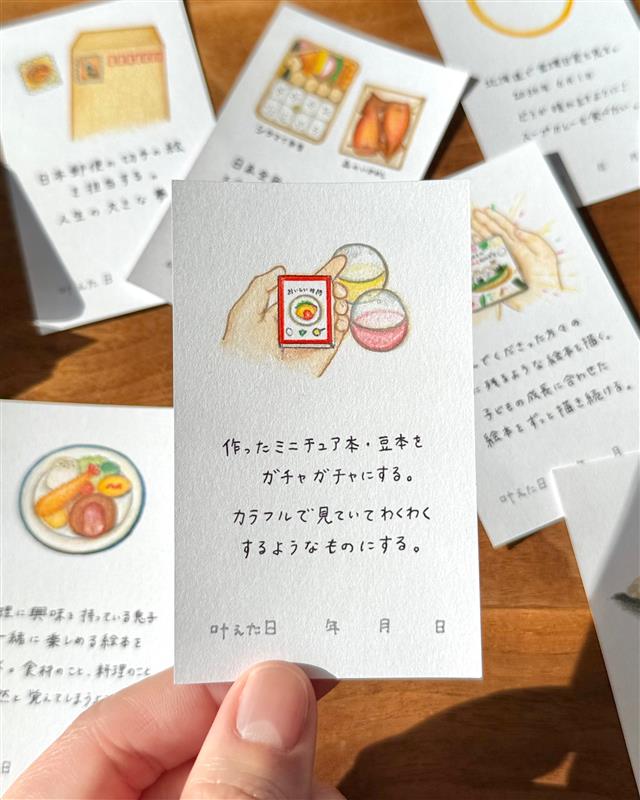 日本郵便の切手の絵
を担当する。
人生の大きな
シウマイ弁当
日本全
北海道で
スープカレーを食べたい
おいしい時間
作ったミニチュア本・豆本を
ガチャガチャにする。
カラフルで見ていてわくわく
するようなものにする。
叶えた日 年 月 日
でくださった方々の
に残るような絵本を描く。
子どもの成長に合わせた
絵本をずっと描き続ける。
叶えた日 年 月
理に興味を持っている息子
一緒に楽しめる絵本を
食材のこと、料理のこと
然と覚えてしまうよう
日
叶えた日
年